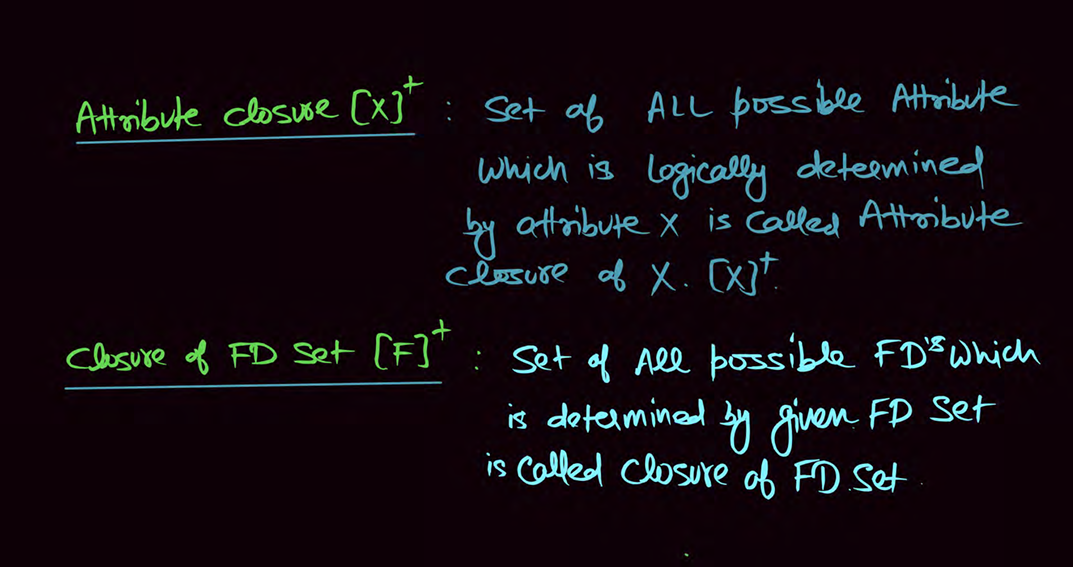 Attribute closure [X]⁺ : Set of ALL possible Attribute
which is logically determined
by attribute X is called Attribute
closure of X. [X]⁺.
Closure of FD Set [F]⁺ : Set of All possible FD's which
is determined by given FD Set
is called closure of FD Set.